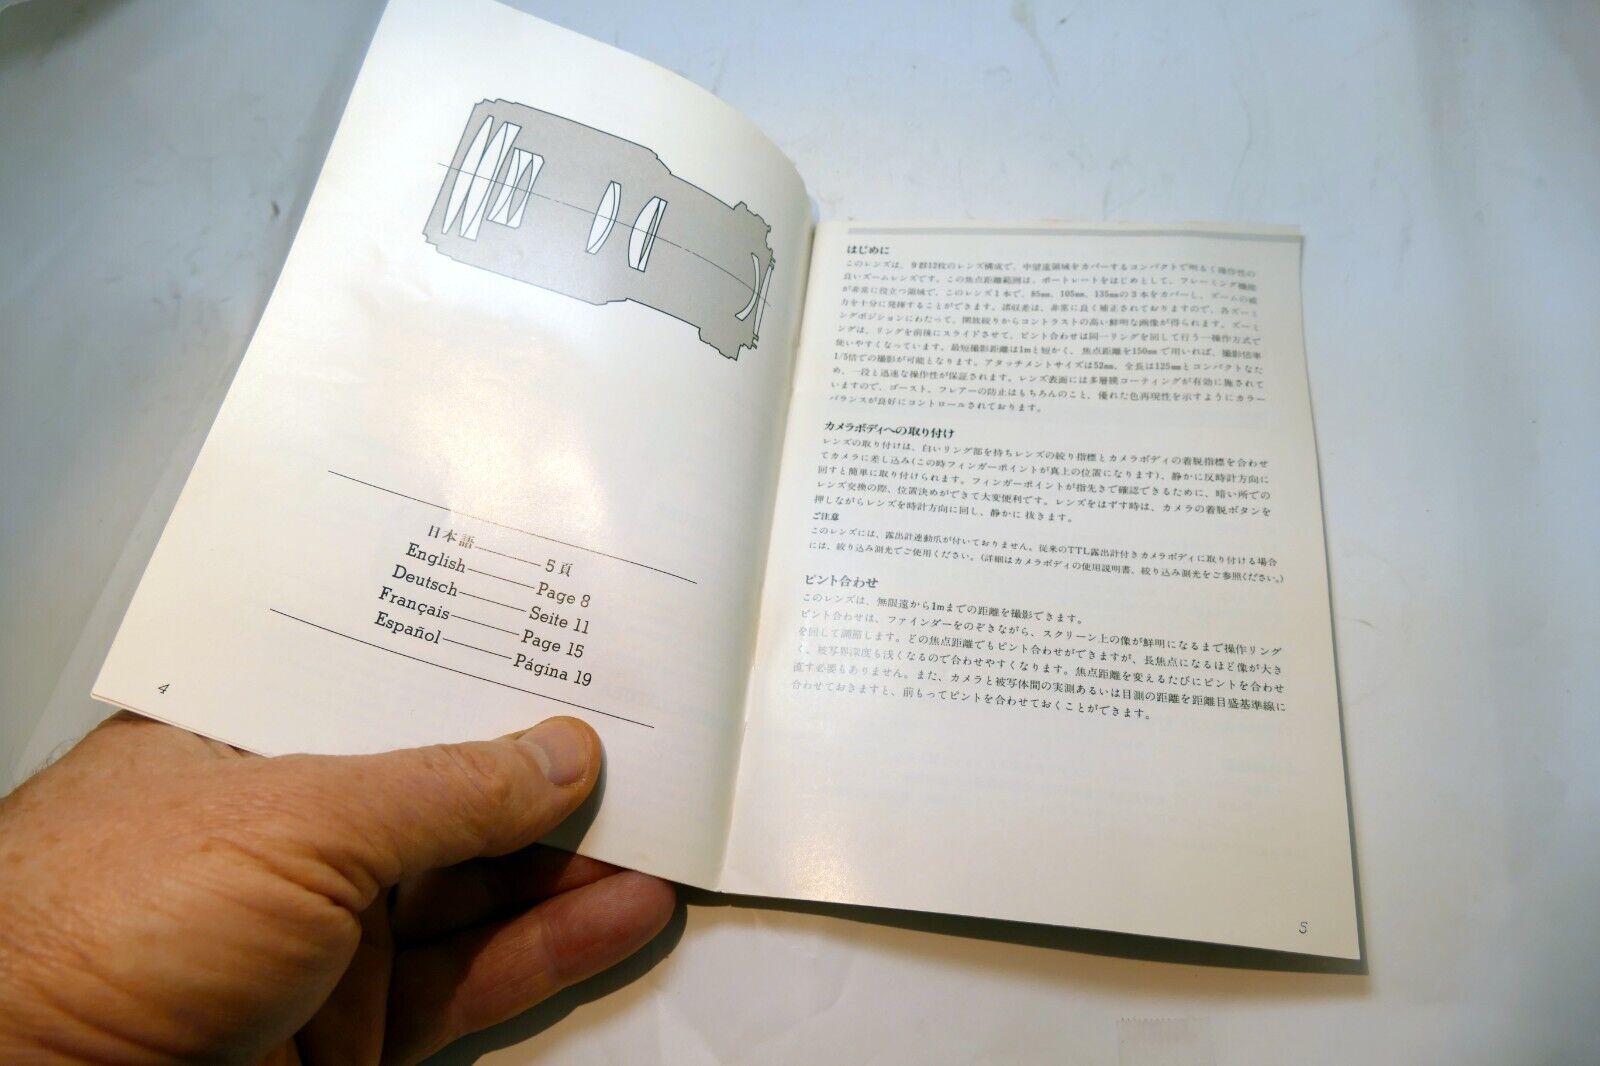 日本語 5頁
English Page 8
Deutsch Seite 11
Français Page 15
Español Página 19
4
はじめに
このレンズは、9群12枚のレンズ構成で、中望遠領域をカバーするコンパクトで明るく操作性の
良いズームレンズです。この焦点距離範囲は、ポートレートをはじめとして、フレーミング機能
が非常に役立つ領域で、このレンズ1本で、85mm、105mm、135mmの3本をカバーし、ズームの威
力を十分に発揮することができます。諸収差は、非常に良く補正されておりますので、各ズーミ
ングポジションにわたって、開放絞りからコントラストの高い鮮明な画像が得られます。ズーミ
ングは、リングを前後にスライドさせて、ピント合わせは同一リングを回して行う一操作方式で
使いやすくなっています。最短撮影距離は1mと短かく、焦点距離を150mmで用いれば、撮影倍率
1/5倍での撮影が可能となります。アタッチメントサイズは52mm、全長は125mmとコンパクトなた
め、一段と迅速な操作性が保証されます。レンズ表面には多層膜コーティングが有効に施されて
いますので、ゴースト、フレアーの防止はもちろんのこと、優れた色再現性を示すようにカラー
バランスが良好にコントロールされております。
カメラボディへの取り付け
レンズの取り付けは、白いリング部を持ちレンズの絞り指標とカメラボディの着脱指標を合わせ
てカメラに差し込み(この時フィンガーポイントが真上の位置になります)、静かに反時計方向に
回すと簡単に取り付けられます。フィンガーポイントが指先きで確認できるために、暗い所での
レンズ交換の際、位置決めができて大変便利です。レンズをはずす時は、カメラの着脱ボタンを
押しながらレンズを時計方向に回し、静かに抜きます。
ご注意
このレンズには、露出計連動爪が付いておりません。従来のTTL露出計付きカメラボディに取り付ける場合
には、絞り込み測光でご使用ください。(詳細はカメラボディの使用説明書、絞り込み測光をご参照ください。)
ピント合わせ
このレンズは、無限遠から1mまでの距離を撮影できます。
ピント合わせは、ファインダーをのぞきながら、スクリーン上の像が鮮明になるまで操作リング
を回して調節します。どの焦点距離でもピント合わせができますが、長焦点になるほど像が大き
く、被写界深度も浅くなるので合わせやすくなります。焦点距離を変えるたびにピントを合わせ
直す必要もありません。また、カメラと被写体間の実測あるいは目測の距離を距離目盛基準線に
合わせておきますと、前もってピントを合わせておくことができます。
5